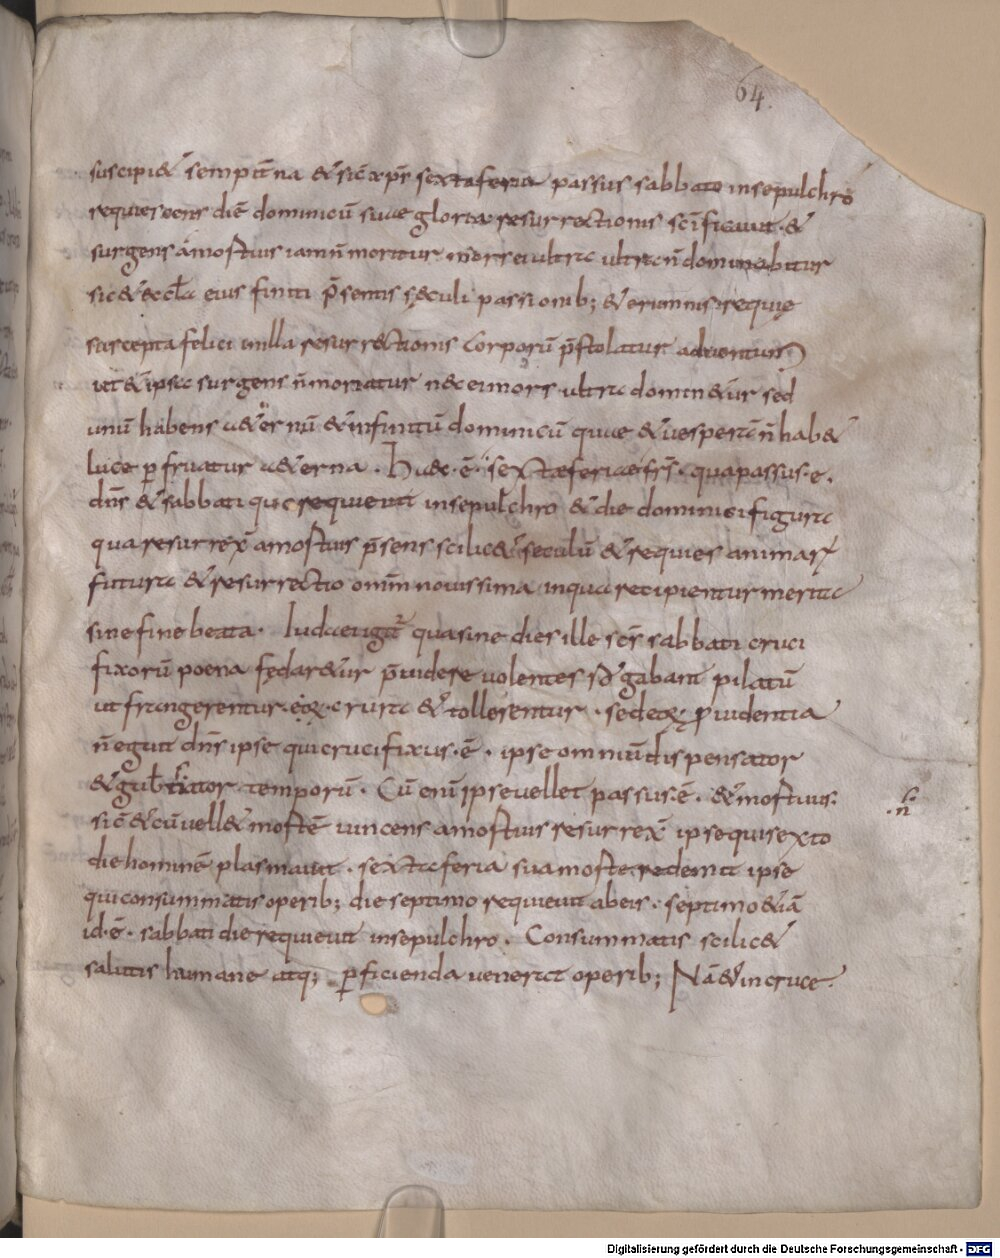 64.
suscipi& sempit̄na & sic̄ xp̄s sexta feria passus sabbato in sepulchro
requiescens diē dominicū suae gloriae resurrectionis sc̄ificauit · &
surgens a mortuis iam n̄ moritur · mors ei ultra ultra n̄ dominabitur
sic & eccl̄a eius finiti p̄sentis sęculi passionib; & erumnis requie
suscepta felici in illa resurrectionis corporū p̄stolatur aduentum
ut & ipsa surgens n̄ moriatur nec ei mors ultra domin&ur sed
unū habens a&ernū & infinitū dominicū quae & uespera n̄ hab&
luce perfruatur a&erna . Haec · ē · sextae feriae frs̄ · qua passus · ē .
dn̄s & sabbati qua requieuit in sepulchro & die dominici figura
qua resurrex̄ a mortuis p̄sens scilic& seculū & requies animarū
futura & resurrectio omn̄ nouissima in qua recipientur merita
sine fine beata · Iudaei igit̄ quasi ne dies ille sc̄s sabbati cruci
fixorū poena fędar&ur p̄uidere uolentes rogabant pilatū
ut frangerentur · eoꝝ · crura & tollerentur · sed eoꝝ prouidentia
n̄ eguit dn̄s ipse qui crucifixus · ē · ipse omniū dispensator
& gub̄nator temporū · Cū enī ipse uellet passus · ē . & mortuus ·
sic̄ & cū uell& mortē uincens a mortuis resurrex̄ ipse qui sexto
die hominē plasmauit · sexta feria sua morte redemit ipse
qui consummatis operib; die septimo requieuit ab eis · septimo &iā
id · ē · sabbati die requieuit in sepulchro . Consummatis scilic&
salutis humane atq; perficienda uenerat operib; Nā & in cruce ·
Digitalisierung gefördert durch die Deutsche Forschungsgemeinschaft - DFG